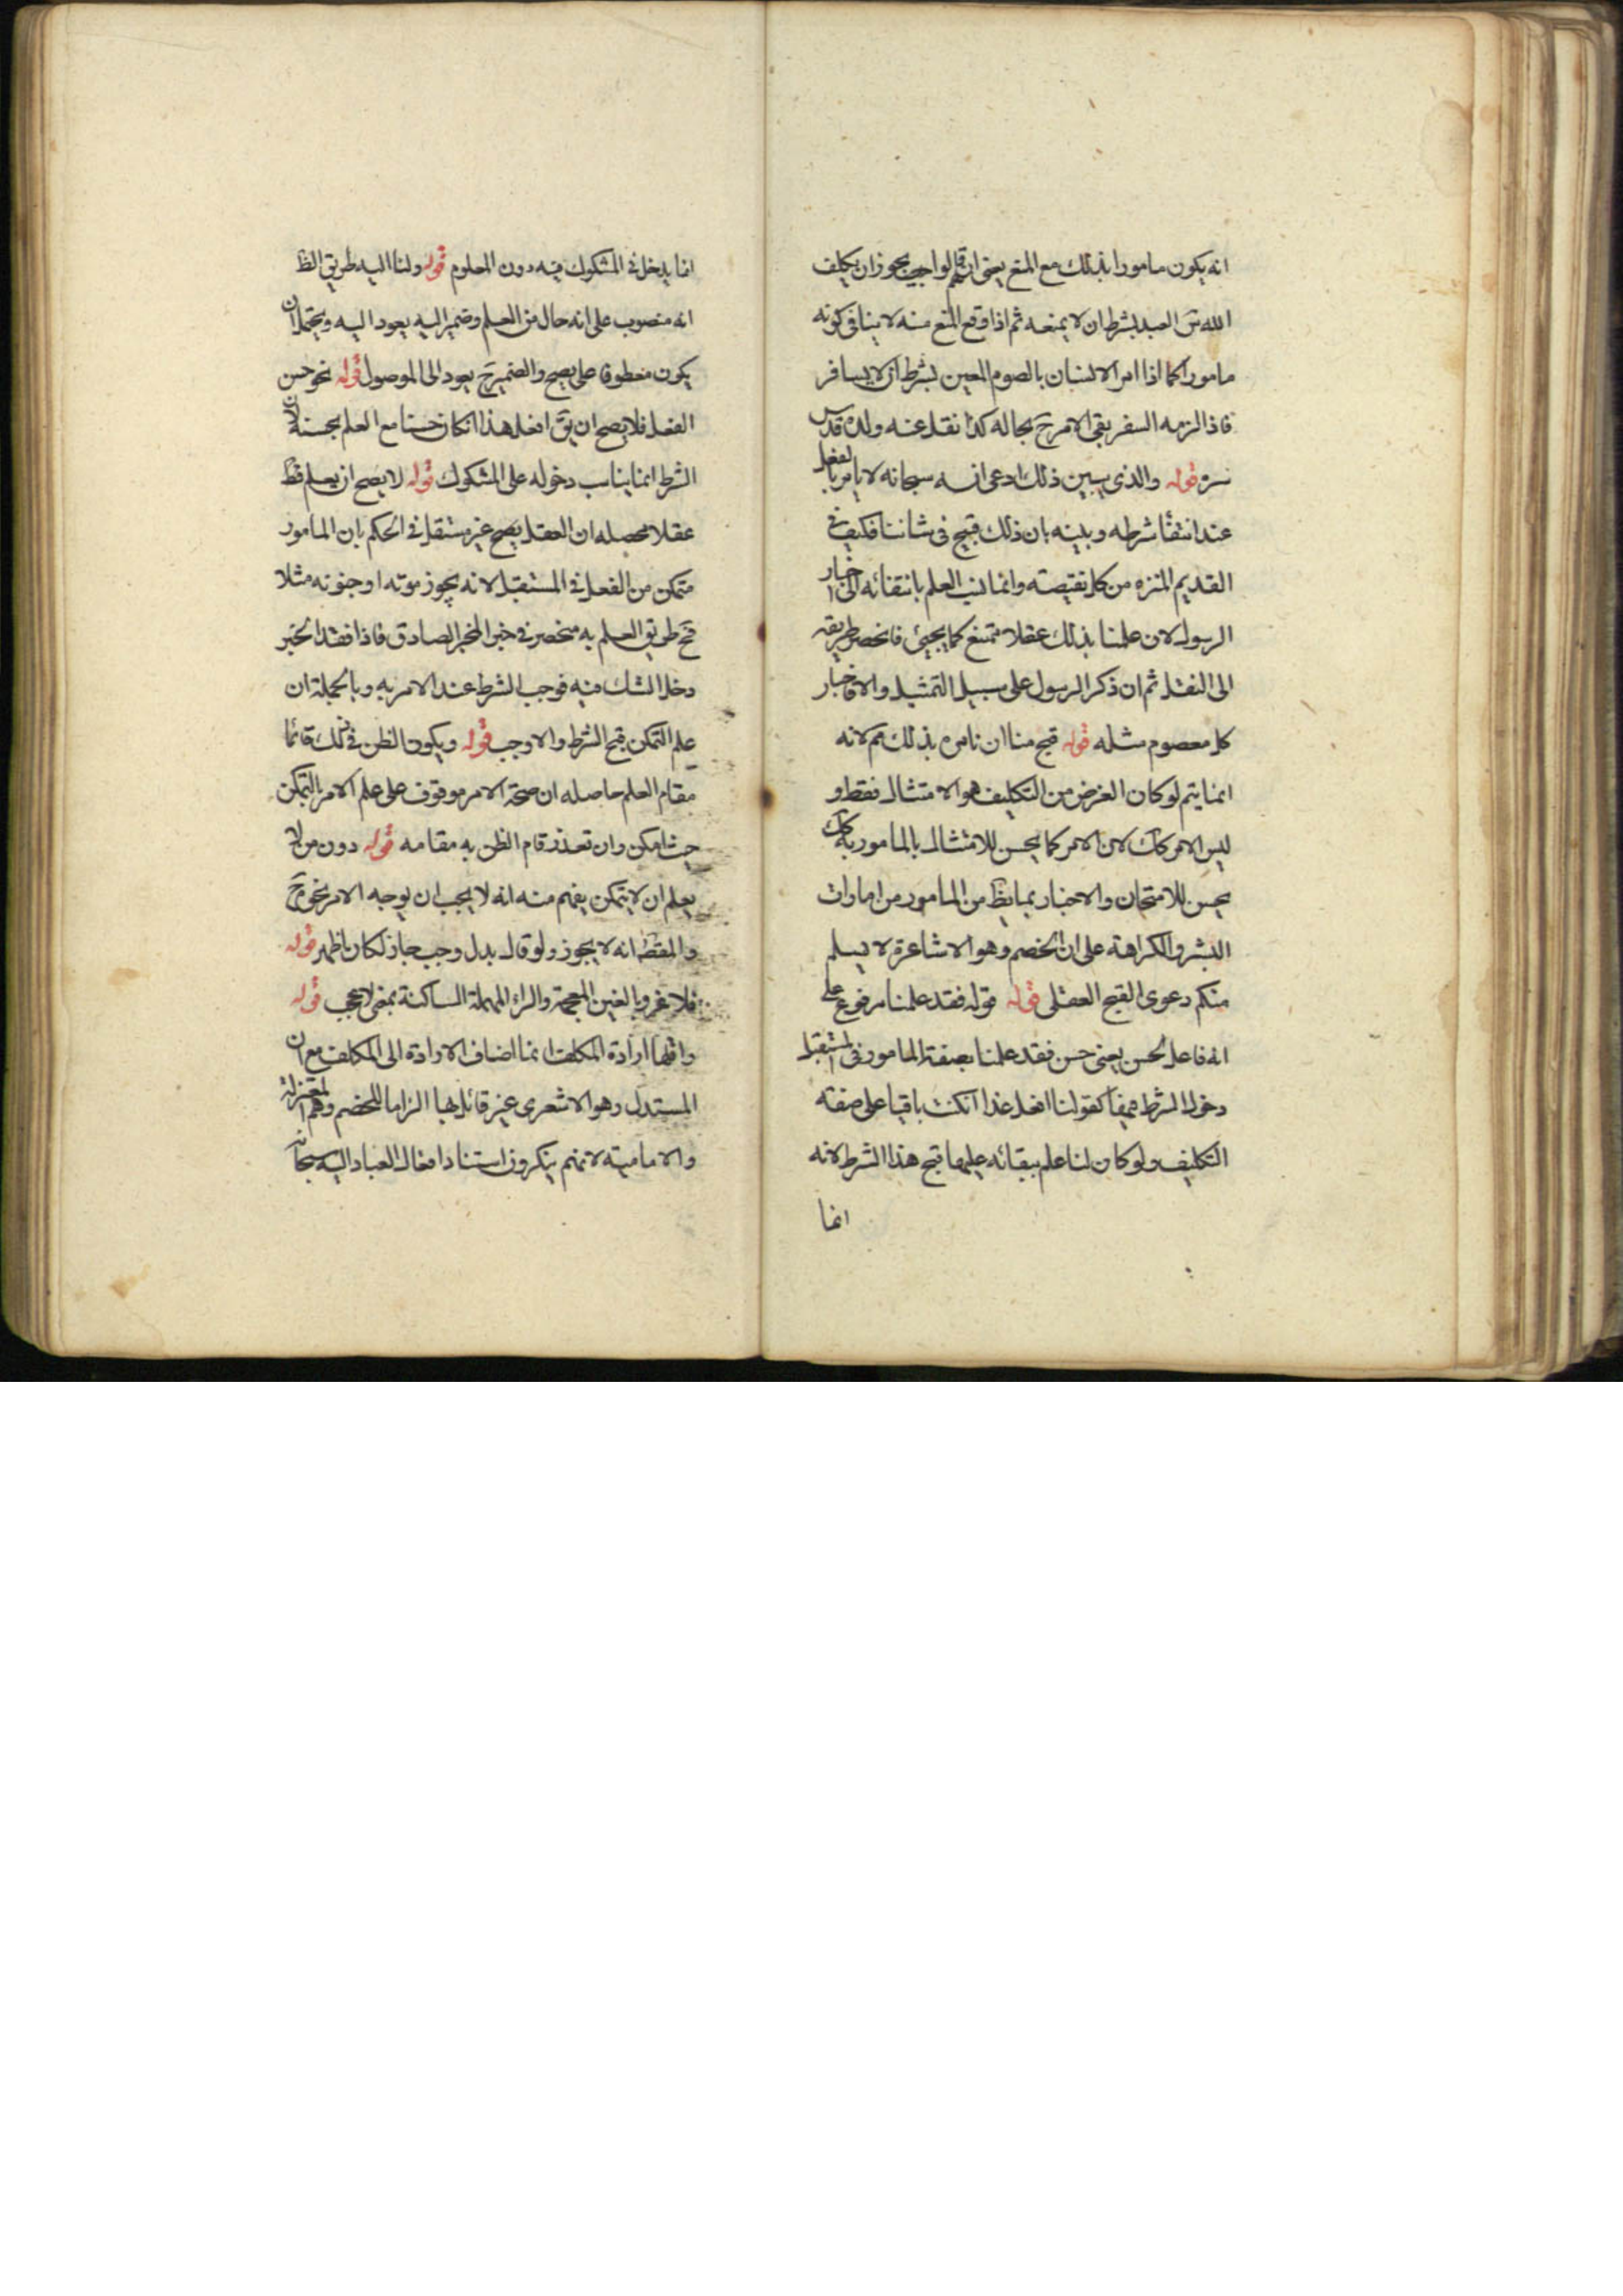 انه يكون مامورا بذلك مع المنع يعنى ان الواجب يجوز ان يكلف
الله تعَ العبد بشرط ان لا يمنعه ثم اذا وقع المنع منه لا ينافى كونه
مامورا كما اذا امر الانسان بالصوم المعين بشرط ان لا يسافر
فاذا لزمه السفر بقى الامر حَ بحاله كذا نقل عنه ولده قدس
سره قوله والذى يبين ذلك ادعى انه سبحانه لا يامر بالفعل
عند انتفا شرطه وبينه بان ذلك قبيح فى شاننا فكيف فى
القديم المنزه من كل نقيصة وانما نسب العلم بانتفائه الى اخبار
الرسول لان علمنا بذلك عقلا ممتنع كما يجيئ فانحصر طريقه
الى النقل ثم ان ذكر الرسول على سبيل التمثيل والا فاخبار
كل معصوم مثله قوله قبح منا ان نامره بذلك مَم لانه
انما يتم لو كان الغرض من التكليف هو الامتثال فقط و
ليس الامر كك لان الامر كما يحسن للامتثال بالمامور به كك
يحسن للامتحان والاختبار بما يظَ من المامور من امارات
البشر والكراهة على ان الخصم وهو الاشاعرة لا يسلم
منكم دعوى القبح العقلى قوله قوله فقد علمنا مرفوع على
انه فاعل لحسن يعنى حسن فقد علمنا بصفة المامور فى المستقبل
دخول الشرط فيها كقولنا افعل غدا ان كنت باقيا على صفة
التكليف ولو كان لنا علم ببقائه عليها قبح هذا الشرط لانه
انما
انما يدخل فى المشكوك فيه دون المعلوم قوله ولنا اليه طريق الظَ
انه منصوب على انه حال من العلم وضمير اليه يعود اليه ويحتمل ان
يكون معطوفا على يصح والضمير حَ يعود الى الموصول قوله نحو حسن
الفعل فلا يصح ان يقَ افعل هذا ان كان حسنا مع العلم بحسنه لان
الشرط انما يناسب دخوله على المشكوك قوله لا يصح ان يعلم قط
عقلا محصله ان العقل يصح غير مستقل فى الحكم بان المامور
متمكن من الفعل فى المستقبل لانه يجوز موته او جنونه مثلا
فحَ طريق العلم به منحصر فى خبر المخبر الصادق فاذا فقد الخبر
دخل الشك فيه فوجب الشرط عند الامر به وبالجملة ان
علم التمكن قبح الشرط والا وجب قوله ويكون الظن فى ذلك قائما
مقام العلم حاصله ان صحة الامر موقوف على علم الامر بالتمكن
حيث امكن وان تعذر قام الظن به مقامه قوله دون من لا
يعلم ان لا يتمكن يفهم منه انه لا يجب ان يوجه الامر نحوه حَ
والمقط انه لا يجوز ولو قال بدل وجب جاز لكان اظهر قوله
فلا غرو بالغين المعجمة والراء المهملة الساكنة بمعنى لا عجب قوله
واقلها ارادة المكلف انما اضاف الارادة الى المكلف مع ان
المستدل وهو الاشعرى غير قائل بها الزاما للخصم وهم المعتزلة
والامامية لانهم ينكرون استناد افعال العباد اليه سبحانه